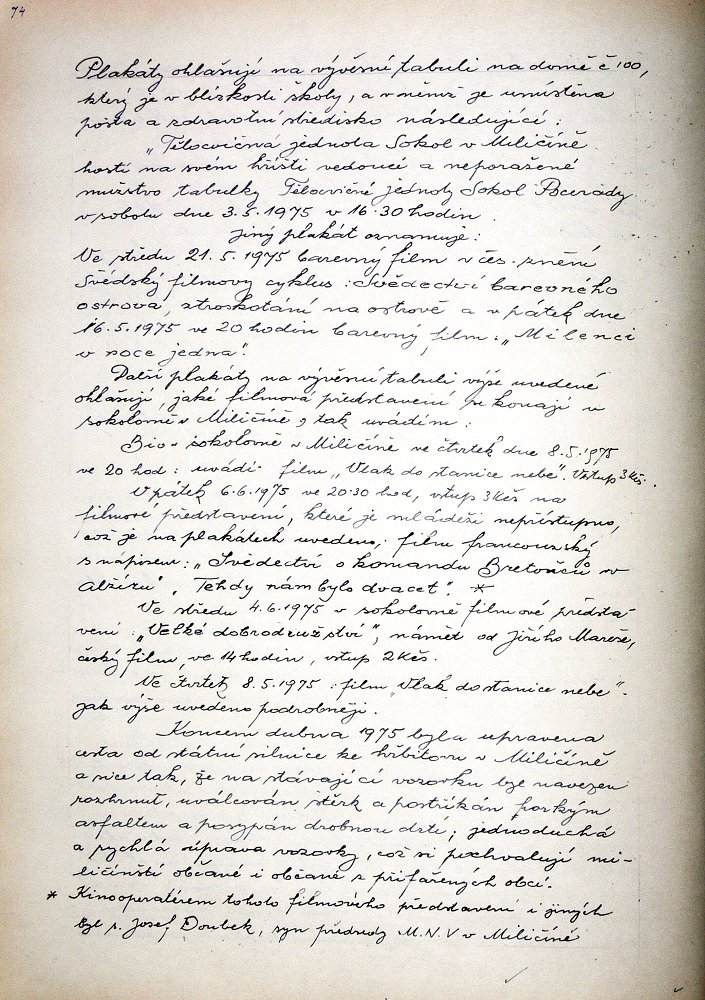 74
Plakáty ohlašují na vývěsní tabuli na domě č 100,
který je v blízkosti školy, a v němž je umístěna
pošta a zdravotní středisko následující:
„Tělocvičná jednota Sokol v Miličíně
hostí na svém hřišti vedoucí a neporažené
mužstvo tabulky Tělocvičné jednoty Sokol Pocerady
v sobotu dne 3.5.1975 v 16.30 hodin.
jiný plakát oznamuje:
Ve středu 21.5.1975 barevný film v čes. znění
Švédský filmový cyklus: Svědectví barevného
ostrova, ztroskotání na ostrově a v pátek dne
16.5.1975 ve 20 hodin barevný film: „Milenci
v roce jedna“.
Další plakáty na vývěsní tabuli výše uvedené
ohlašují, jaké filmová představení se konají v
sokolovně v Miličíně, tak uvádím:
Bio v sokolovně v Miličíně ve čtvrtek dne 8.5.1975
ve 20 hod: uvádí film „Vlak do stanice nebe“. Vstup 3 Kčs.
V pátek 6.6.1975 ve 20 30 hod, vstup 3 Kčs na
filmové představení, které je mládeži nepřístupno,
což je na plakátech uvedeno, film francouzský
s nápisem: „Svědectví o komandu Bretonců v
Alžíru“, „Tehdy nám bylo dvacet“. *
Ve středu 4.6.1975 v sokolovně filmové předsta-
vení: „Velké dobrodružství“, námět od Jiřího Mareše,
český film, ve 14 hodin, vstup 2 Kčs.
Ve čtvrtek 8.5.1975: film „Vlak do stanice nebe“.
jak výše uvedeno podrobněji.
Koncem dubna 1975 byla upravena
cesta od státní silnice ke hřbitovu v Miličíně
a sice tak, že na stávající vozovku byl navezen
rozhrnut, uválcován štěrk a postříkán horkým
asfaltem a posypán drobnou drtí; jednoduchá
a rychlá úprava vozovky, což si pochvalují mi-
ličínští občané i občané z přifařených obcí.
* Kinooperatérem tohoto filmového představení i jiných
byl s. Josef Doubek, syn předsedy M.N.V v Miličíně